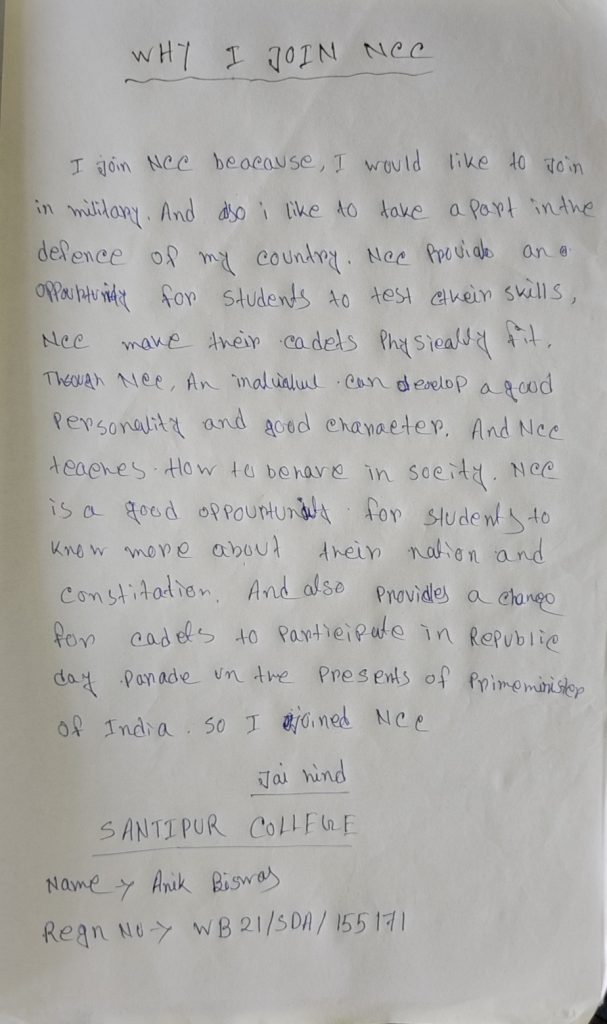 WHY I JOIN NCC
I join NCC beacause, I would like to join
in military. And also i like to take a part in the
defence of my country. NCC Provide an
opportunity for students to test their skills,
NCC make their cadets Physically fit.
Through NCC, An individual can develop a good
Personality and good character. And NCC
teaches How to behave in socity. NCC
is a good oppourtunity for students to
Know more about their nation and
Constitation. And also Provides a change
for cadets to Participate in Republic
day Parade in the Presents of Primeminister
of India. So I joined NCC
Jai hind
SANTIPUR COLLEGE
Name → Anik Biswas
Regn No → WB21/SDA/155171